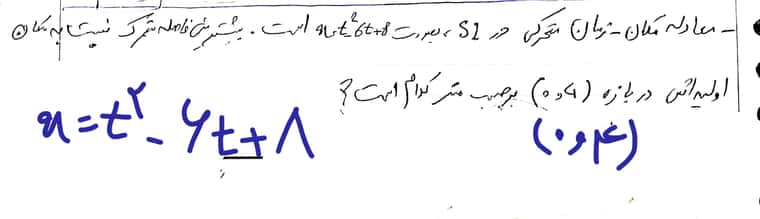 - معادله مکان - زمان متحرکی در SI بصورت x=t²-6t+8 است . بیشترین فاصله متحرک نسبت به مکان
اولیه‌اش در بازه (۰ و ۴) برحسب متر کدام است؟
x = t² - 6t + ۸ (۰ و ۴)